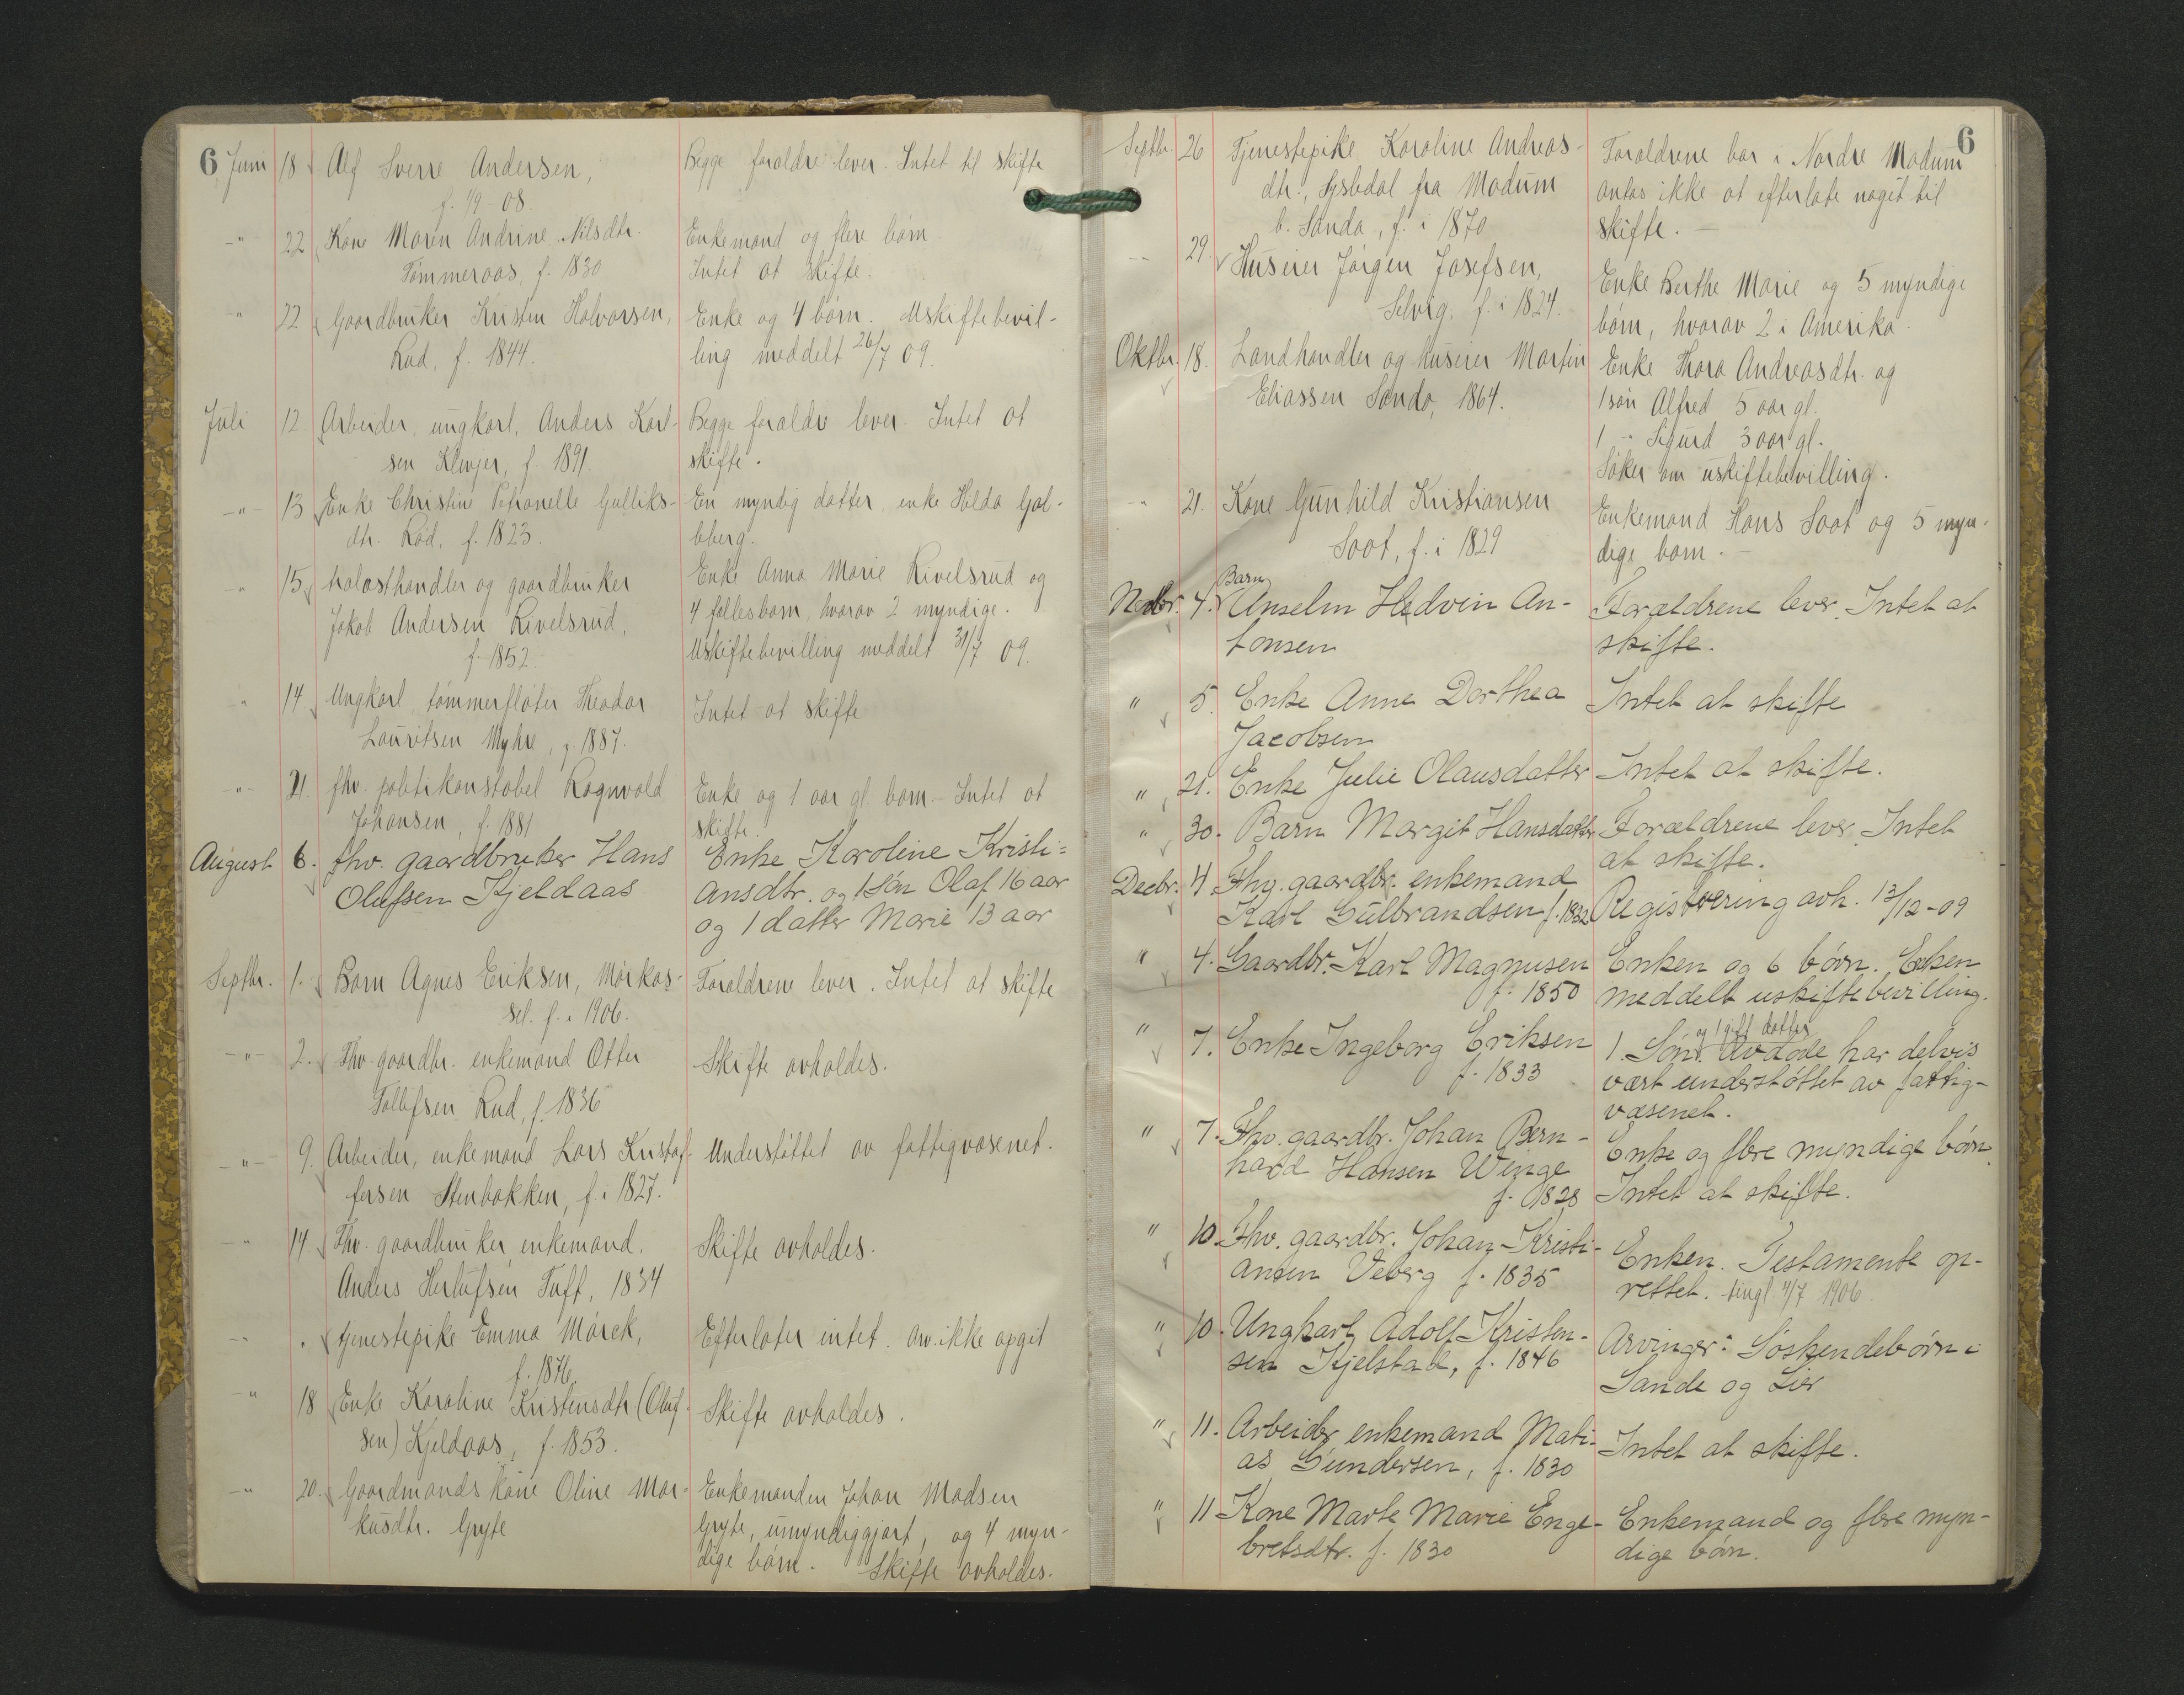 6 Juni 18 Alf Sverre Andersen, Begge forældre lever. Intet til skifte
f. 1/9 08.
-"- 22 Kone Maren Andrine Nilsdtr. Enkemand og flere børn.
Tømmeraas, f. 1830 Intet at skifte.
" 22 Gaardbruker Kristen Halvorsen, Enke og 4 børn. Uskiftebevil-
Rud, f. 1844. ling meddelt 26/7 09.
Juli 12. Arbeider, ungkarl, Anders Karl- Begge forældre lever. Intet at
sen Klevjer, f. 1891. skifte.
-"- 13 Enke Christine Petronelle Gulliks- En myndig datter, enke Hilda Gol-
dtr. Rød, f. 1823. berg.
" 15 Trælasthandler og gaardbruker Enke Anna Marie Rivelsrud og
Jakob Andersen Rivelsrud, 4 fællesbarn, hvorav 2 myndige.
f. 1852. Uskiftebevilling meddelt 31/7 09.
" 14 Ungkarl, tømmerfløter Theodor Intet at skifte
Lauritsen Myhre, f. 1887.
-"- 21. fhv. politikonstabel Ragnvald Enke og 1 aar gl. barn. Intet at
Johansen, f. 1881 skifte.
August 6. fhv. gaardbruker Hans Enke Karoline Kristi=
Olufsen Kjeldaas ansdtr. og 1 Søn Olaf 16 aar
og 1 datter Marie 13 aar
Septbr. 1. Barn Agnes Eriksen, Mørkas- Forældrene lever. Intet at skifte
sel. f. i 1906.
-"- 2. Fhv. gaardbr. enkemand Otter Skifte avholdes.
Tollefsen Rud, f. 1836
-"- 9. Arbeider, enkemand Lars Kristof- Understøttet av fattigvæsenet.
fersen Stenbakken, f. i 1827.
-"- 14 Fhv. gaardbruker, enkemand, Skifte avholdes.
Anders Herlufsen Tuft, 1834
-"- . tjenestepike Emma Mørck, Efterlater intet. Arv. ikke opgit
f. 1876.
-"- 18 Enke Karoline Kristensdtr (Oluf- Skifte avholdes.
sen) Kjeldaas, f. 1853.
-"- 20. Gaardmands kone Oline Mar- Enkemanden Johan Madsen
kusdtr. Gryte Gryte, umyndiggjort, og 4 myn-
dige børn. Skifte avholdes.
6
Septbr. 26 Tjenestepike Karoline Andreas- Forældrene bor i Nordre Modum
dtr., Sysledal fra Modum antas ikke at efterlate noget til
b. Sanda, f. i 1870 skifte. —
-"- 29. Huseier Jørgen Josefsen, Enke Berthe Marie og 5 myndige
Selvig, f. i 1824. børn, hvorav 2 i Amerika.
Oktbr. 18. Landhandler og huseier Martin Enke Thora Andreasdtr. og
Eliassen Sando, 1864. 1 søn Alfred 5 aar gl.
1 -"- Sigurd 3 aar gl.
Søker om uskiftebevilling.
-"- 21. Kone Gunhild Kristiansen Enkemand Hans Soot og 5 myn-
Soot, f. i 1829 dige barn. —
Barn
Novbr. 4. Anselm Hedvin An- Forældrene lever. Intet at
tonsen skifte.
" 5. Enke Anne Dorthea Intet at skifte
Jacobsen
" 21. Enke Julie Olausdatter Intet at skifte.
" 30. Barn Margit Hansdatter Forældrene lever. Intet
at skifte.
Decbr. 4. Fhv. gaardbr. enkemand
Karl Gulbrandsen f. 1832 Registrering avh. 13/12-09
" 4. Gaardbr. Karl Magnusen Enken og 6 børn. Enken
f. 1850 meddelt uskiftebevilling.
og 1 gift datter
" 7. Enke Ingeborg Eriksen 1 Søn. Avdøde har delvis
f. 1833 vært understøttet av fattig-
væsenet.
" 7. Fhv. gaardbr. Johan Bern- Enke og flere myndige børn.
hard Hansen Winge Intet at skifte.
f. 1828
" 10. Fhv. gaardbr. Johan Kristi- Enken. Testamente op-
ansen Veberg f. 1835 rettet. tingl. 4/7 1906.
" 10. Ungkarl Adolf Kristen- Arvinger: Søskendebørn i
sen Kjelstad, f. 1846 Sande og Lier
" 11. Arbeider enkemand Mati- Intet at skifte.
as Gundersen, f. 1830
" 11 Kone Marte Marie Enge- Enkemand og flere myn-
bretsdtr. f. 1830 dige børn.